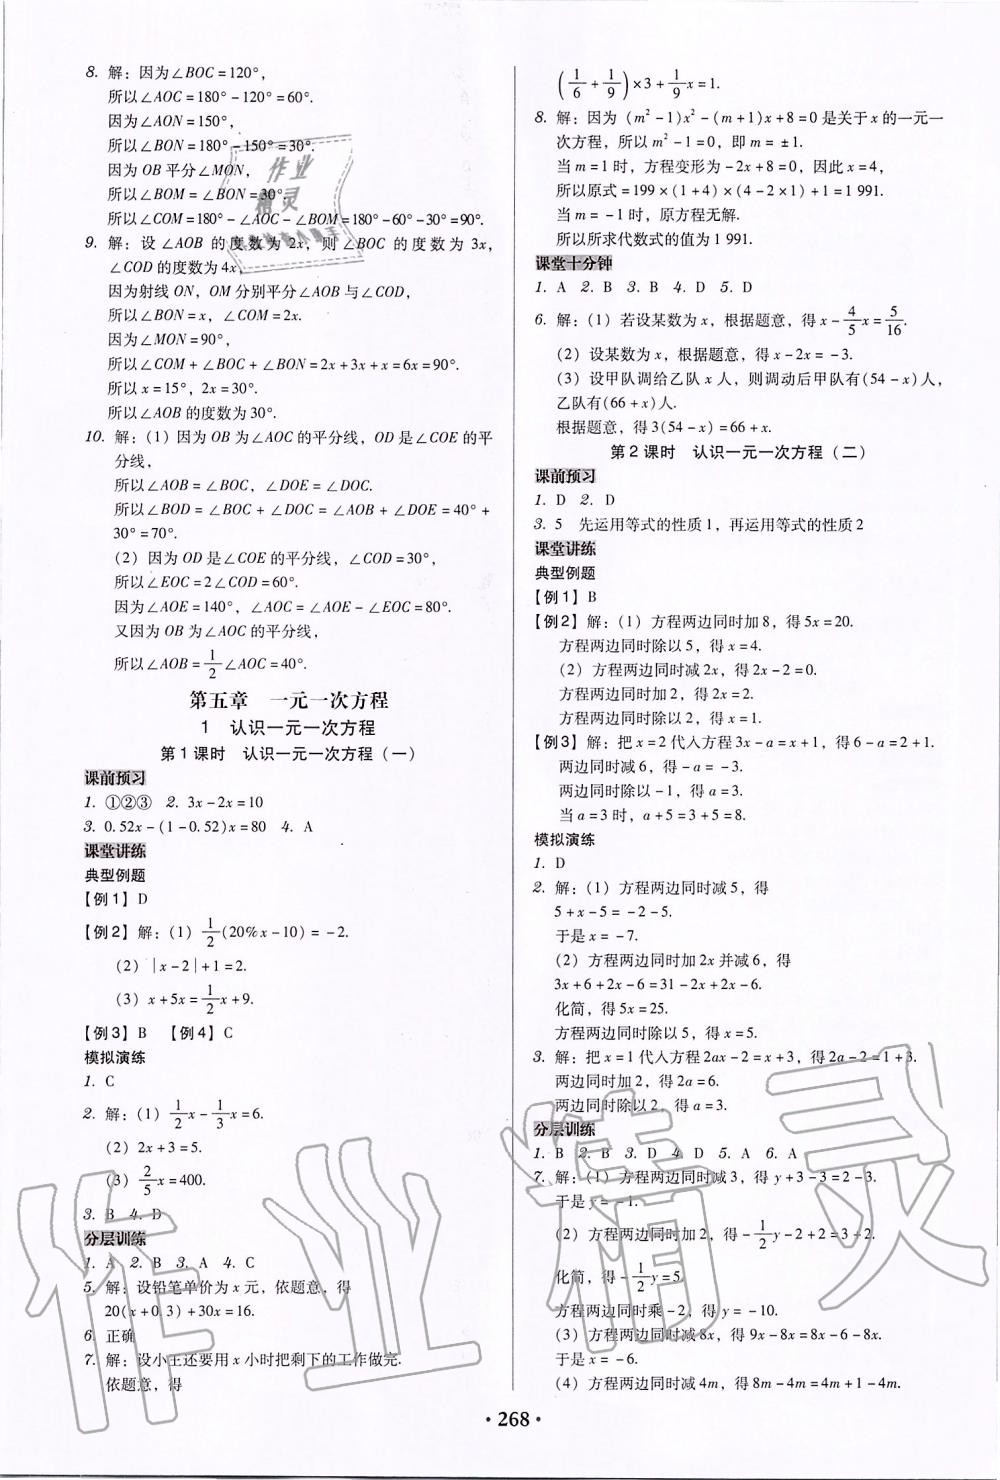 8. 解：因为∠BOC=120°，
所以∠AOC=180°-120°=60°.
因为∠AON=150°，
所以∠BON=180°-150°=30°.
因为 OB 平分∠MON，
所以∠BOM=∠BON=30°.
所以∠COM=180°-∠AOC-∠BOM=180°-60°-30°=90°.
9. 解：设∠AOB 的度数为 2x，则∠BOC 的度数为 3x，
∠COD 的度数为 4x，
因为射线 ON，OM 分别平分∠AOB 与∠COD，
所以∠BON=x，∠COM=2x.
因为∠MON=90°，
所以∠COM+∠BOC+∠BON=2x+3x+x=6x=90°.
所以 x=15°，2x=30°.
所以∠AOB 的度数为 30°.
10. 解：(1) 因为 OB 为∠AOC 的平分线，OD 是∠COE 的平
分线，
所以∠AOB=∠BOC，∠DOE=∠DOC.
所以∠BOD=∠BOC+∠DOC=∠AOB+∠DOE=40°+
30°=70°.
(2) 因为 OD 是∠COE 的平分线，∠COD=30°，
所以∠EOC=2∠COD=60°.
因为∠AOE=140°，∠AOC=∠AOE-∠EOC=80°.
又因为 OB 为∠AOC 的平分线，
所以∠AOB=1/2∠AOC=40°.
第五章 一元一次方程
1 认识一元一次方程
第 1 课时 认识一元一次方程（一）
课前预习
1. ①②③ 2. 3x-2x=10
3. 0.52x-(1-0.52)x=80 4. A
课堂讲练
典型例题
【例 1】D
【例 2】解：(1) 1/2(20%x-10)=-2.
(2) |x-2|+1=2.
(3) x+5x=1/2x+9.
【例 3】B 【例 4】C
模拟演练
1. C
2. 解：(1) 1/2x-1/3x=6.
(2) 2x+3=5.
(3) 2/5x=400.
3. B 4. D
分层训练
1. A 2. B 3. A 4. C
5. 解：设铅笔单价为 x 元，依题意，得
20(x+0.3)+30x=16.
6. 正确
7. 解：设小王还要用 x 小时把剩下的工作做完.
依题意，得
(1/6+1/9)×3+1/9x=1.
8. 解：因为 (m²-1)x²-(m+1)x+8=0 是关于 x 的一元一
次方程，所以 m²-1=0，即 m=±1.
当 m=1 时，方程变形为-2x+8=0，因此 x=4，
所以原式=199×(1+4)×(4-2×1)+1=1 991.
当 m=-1 时，原方程无解.
所以所求代数式的值为 1 991.
课堂十分钟
1. A 2. B 3. B 4. D 5. D
6. 解：(1) 若设某数为 x，根据题意，得 x-4/5x=5/16.
(2) 设某数为 x，根据题意，得 x-2x=-3.
(3) 设甲队调给乙队 x 人，则调动后甲队有(54-x)人，
乙队有(66+x)人.
根据题意，得 3(54-x)=66+x.
第 2 课时 认识一元一次方程（二）
课前预习
1. D 2. D
3. 5 先运用等式的性质 1，再运用等式的性质 2
课堂讲练
典型例题
【例 1】B
【例 2】解：(1) 方程两边同时加 8，得 5x=20.
方程两边同时除以 5，得 x=4.
(2) 方程两边同时减 2x，得 2x-2=0.
方程两边同时加 2，得 2x=2.
方程两边同时除以 2，得 x=1.
【例 3】解：把 x=2 代入方程 3x-a=x+1，得 6-a=2+1.
两边同时减 6，得-a=-3.
两边同时除以-1，得 a=3.
当 a=3 时，a+5=3+5=8.
模拟演练
1. D
2. 解：(1) 方程两边同时减 5，得
5+x-5=-2-5.
于是 x=-7.
(2) 方程两边同时加 2x 并减 6，得
3x+6+2x-6=31-2x+2x-6.
化简，得 5x=25.
方程两边同时除以 5，得 x=5.
3. 解：把 x=1 代入方程 2ax-2=x+3，得 2a-2=1+3.
两边同时加 2，得 2a=6.
两边同时除以 2，得 a=3.
分层训练
1. B 2. B 3. D 4. D 5. A 6. A
7. 解：(1) 方程两边同时减 3，得 y+3-3=2-3.
于是 y=-1.
(2) 方程两边同时减 2，得-1/2y-2+2=3+2.
化简，得-1/2y=5.
方程两边同时乘-2，得 y=-10.
(3) 方程两边同时减 8x，得 9x-8x=8x-6-8x.
于是 x=-6.
(4) 方程两边同时减 4m，得 8m-4m=4m+1-4m.
·268·
作业精灵